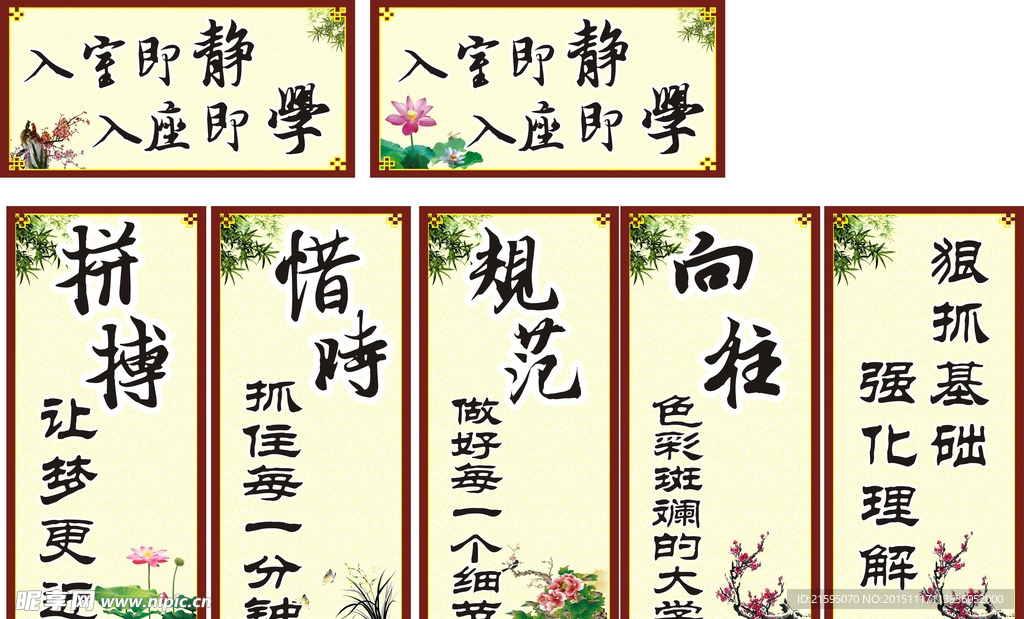 入室即静
入座即學
入室即静
入座即學
拼搏
让梦更近
惜時
抓住每一分钟
規范
做好每一个细节
向往
色彩斑斓的大学
狠抓基础
强化理解
昵享网 www.nipic.cn